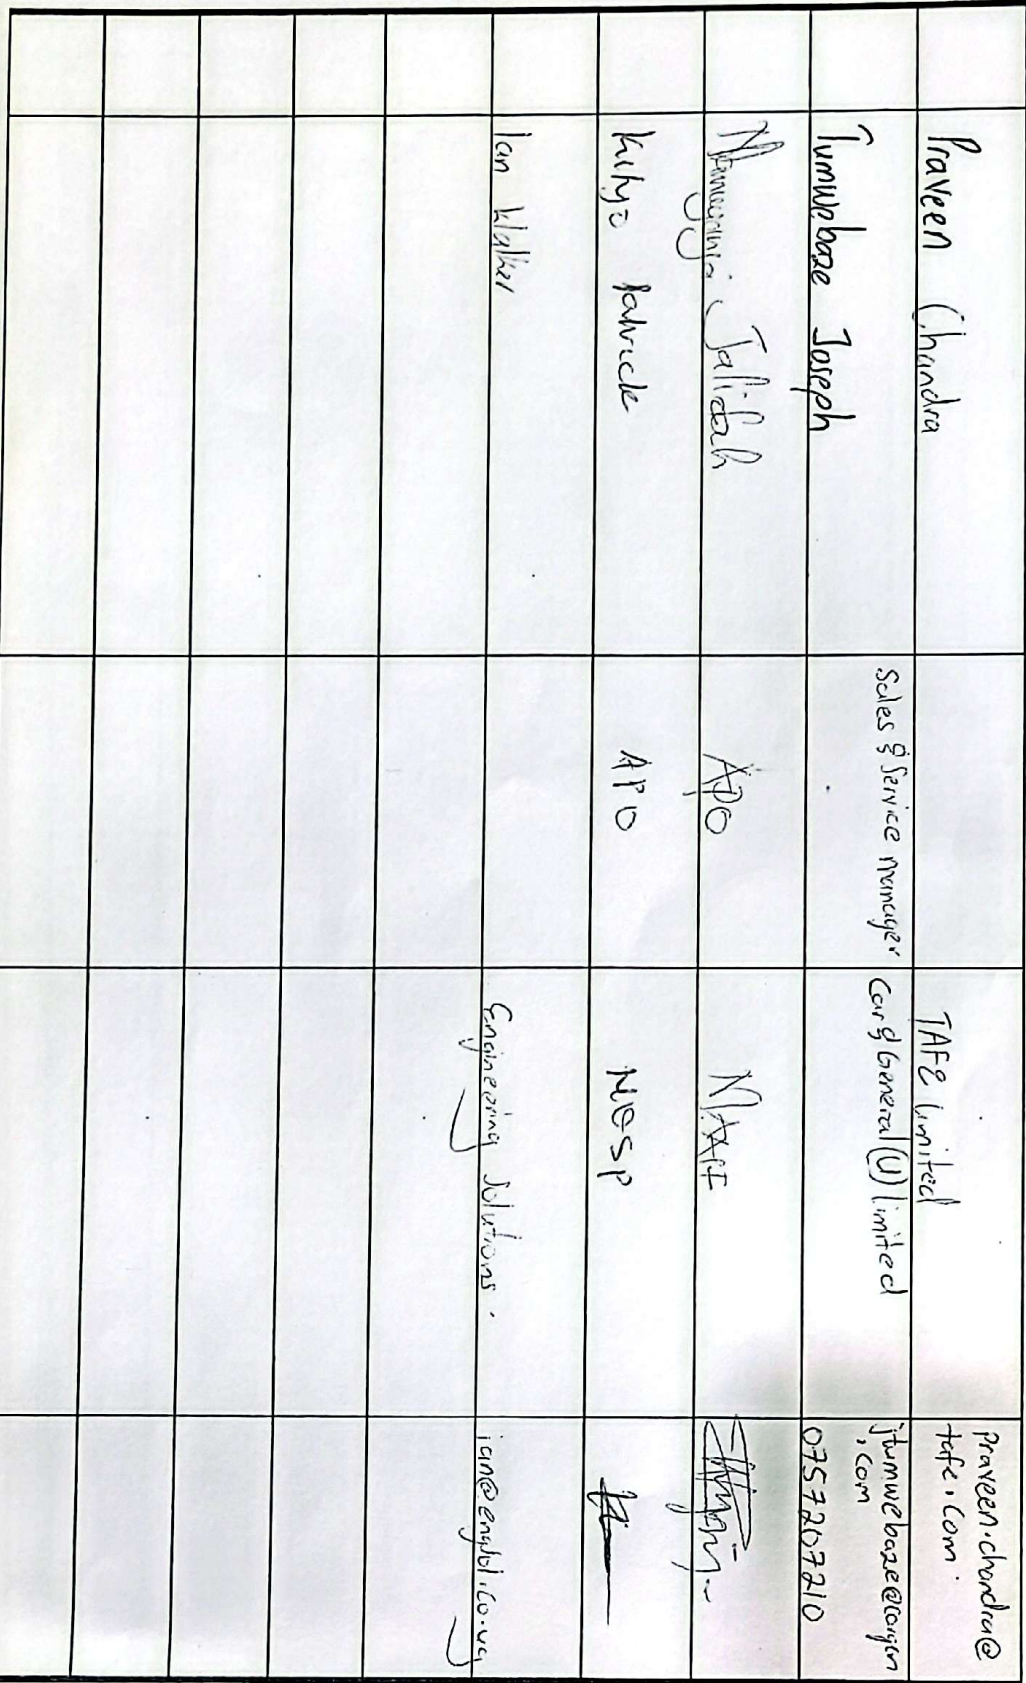 Praveen Chandra
TAFE Limited
praveen.chandra@
tafe.com.
Tumwebaze Joseph
Sales & Service manager
Car & General (U) Limited
jtumwebaze@cargen
.com
0757207210
Jalidah
APO
Kihyo Patrick
APO
NOSP
Ian Walker
Engineering Solutions.
ian@englsol.co.ug